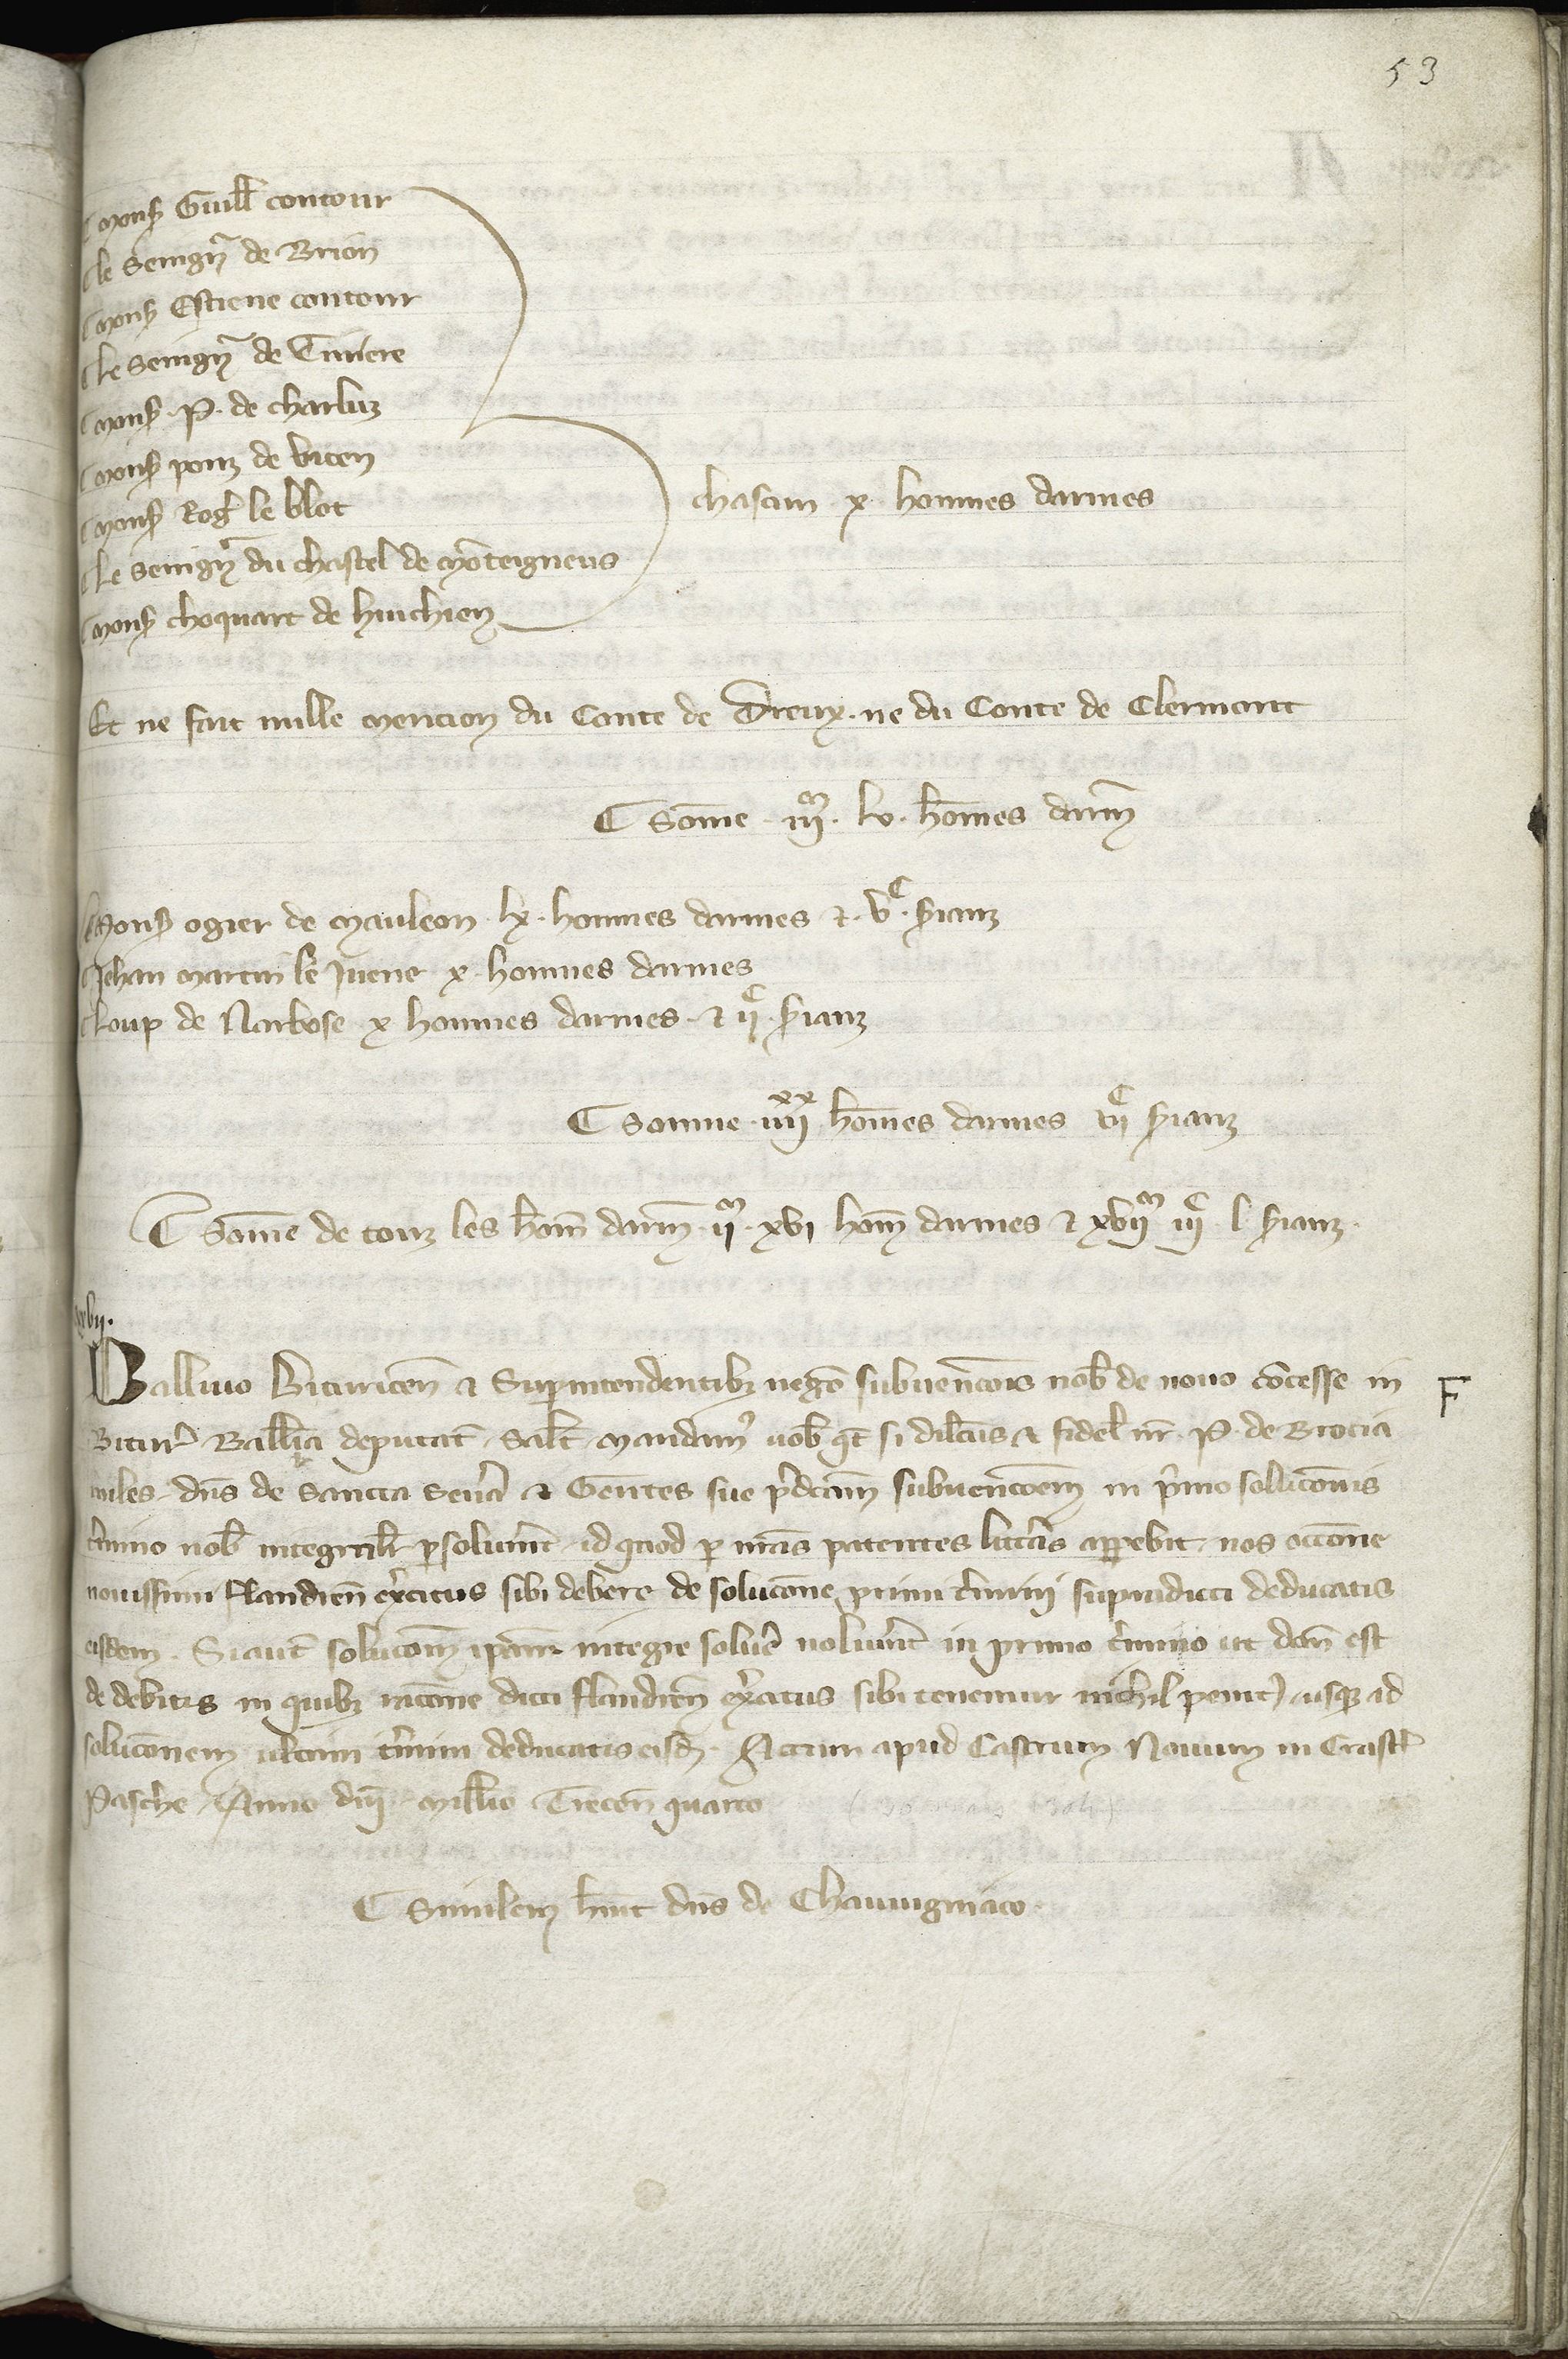 53
mons Guill contour
le Seingn de Brion
mons Estiene contour
le Seingn de Tinere
mons . P . de charluz
mons ponz de
mons Rog le blot
chascun . x . hommes darmes
le Seingn du chastel de moteigneus
mons choquart de
Et ne fait nulle mencion du Conte de Dreux . ne du Conte de Clermont
Some . iii m . lv . homes darm
Mons ogier de mauleon . lx . hommes darmes et . v c . serianz
Jehan martin le Juene x . hommes darmes
Loup de Narbose x hommes darmes . et ii c . serianz
Somme . iiii xx homes darmes vii c serianz
Some de touz les hom darm . ii m . xvi hom darmes et xvii m iii c . l serianz .
xvii .
Ballivo Bituricen et Superintendentibz negoc subvencois nob de novo cocesse in
F
Bitur Ballia deputat . Salt . mandam vob qt si dilcus et fidel nr . P . de Brocia
miles . dns de Sancta Severa et Gentes sue pdcam subvencoem in pmo solucois
tmino nob integralr psolverint id quod p nras patentes litteras apparebit . nos occone
novissimi flandren exercitus sibi debere de solucone primi tmini supradicti deducatis
eisdem . Si aut solucoem ipam integre solvere noluerint in primo tmino ut dcm est
de debitis in quibz racone dicti flandren exercitus sibi tenemur nichil penit usqz ad
solucionem ultimi tmini deducatis eisd . Actum apud Castrum Novum in Crastino
Pasche Anno dni millio Trecen quarto
Similem hnt dns de Chauvigniaco .